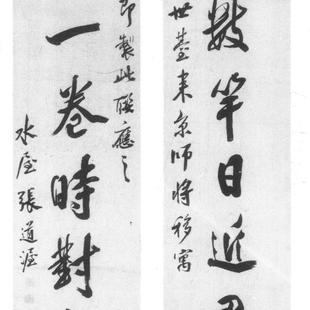 數竿日近
世臺来京師將移寓
即製此聯應之
一卷時對
水屋張道渥